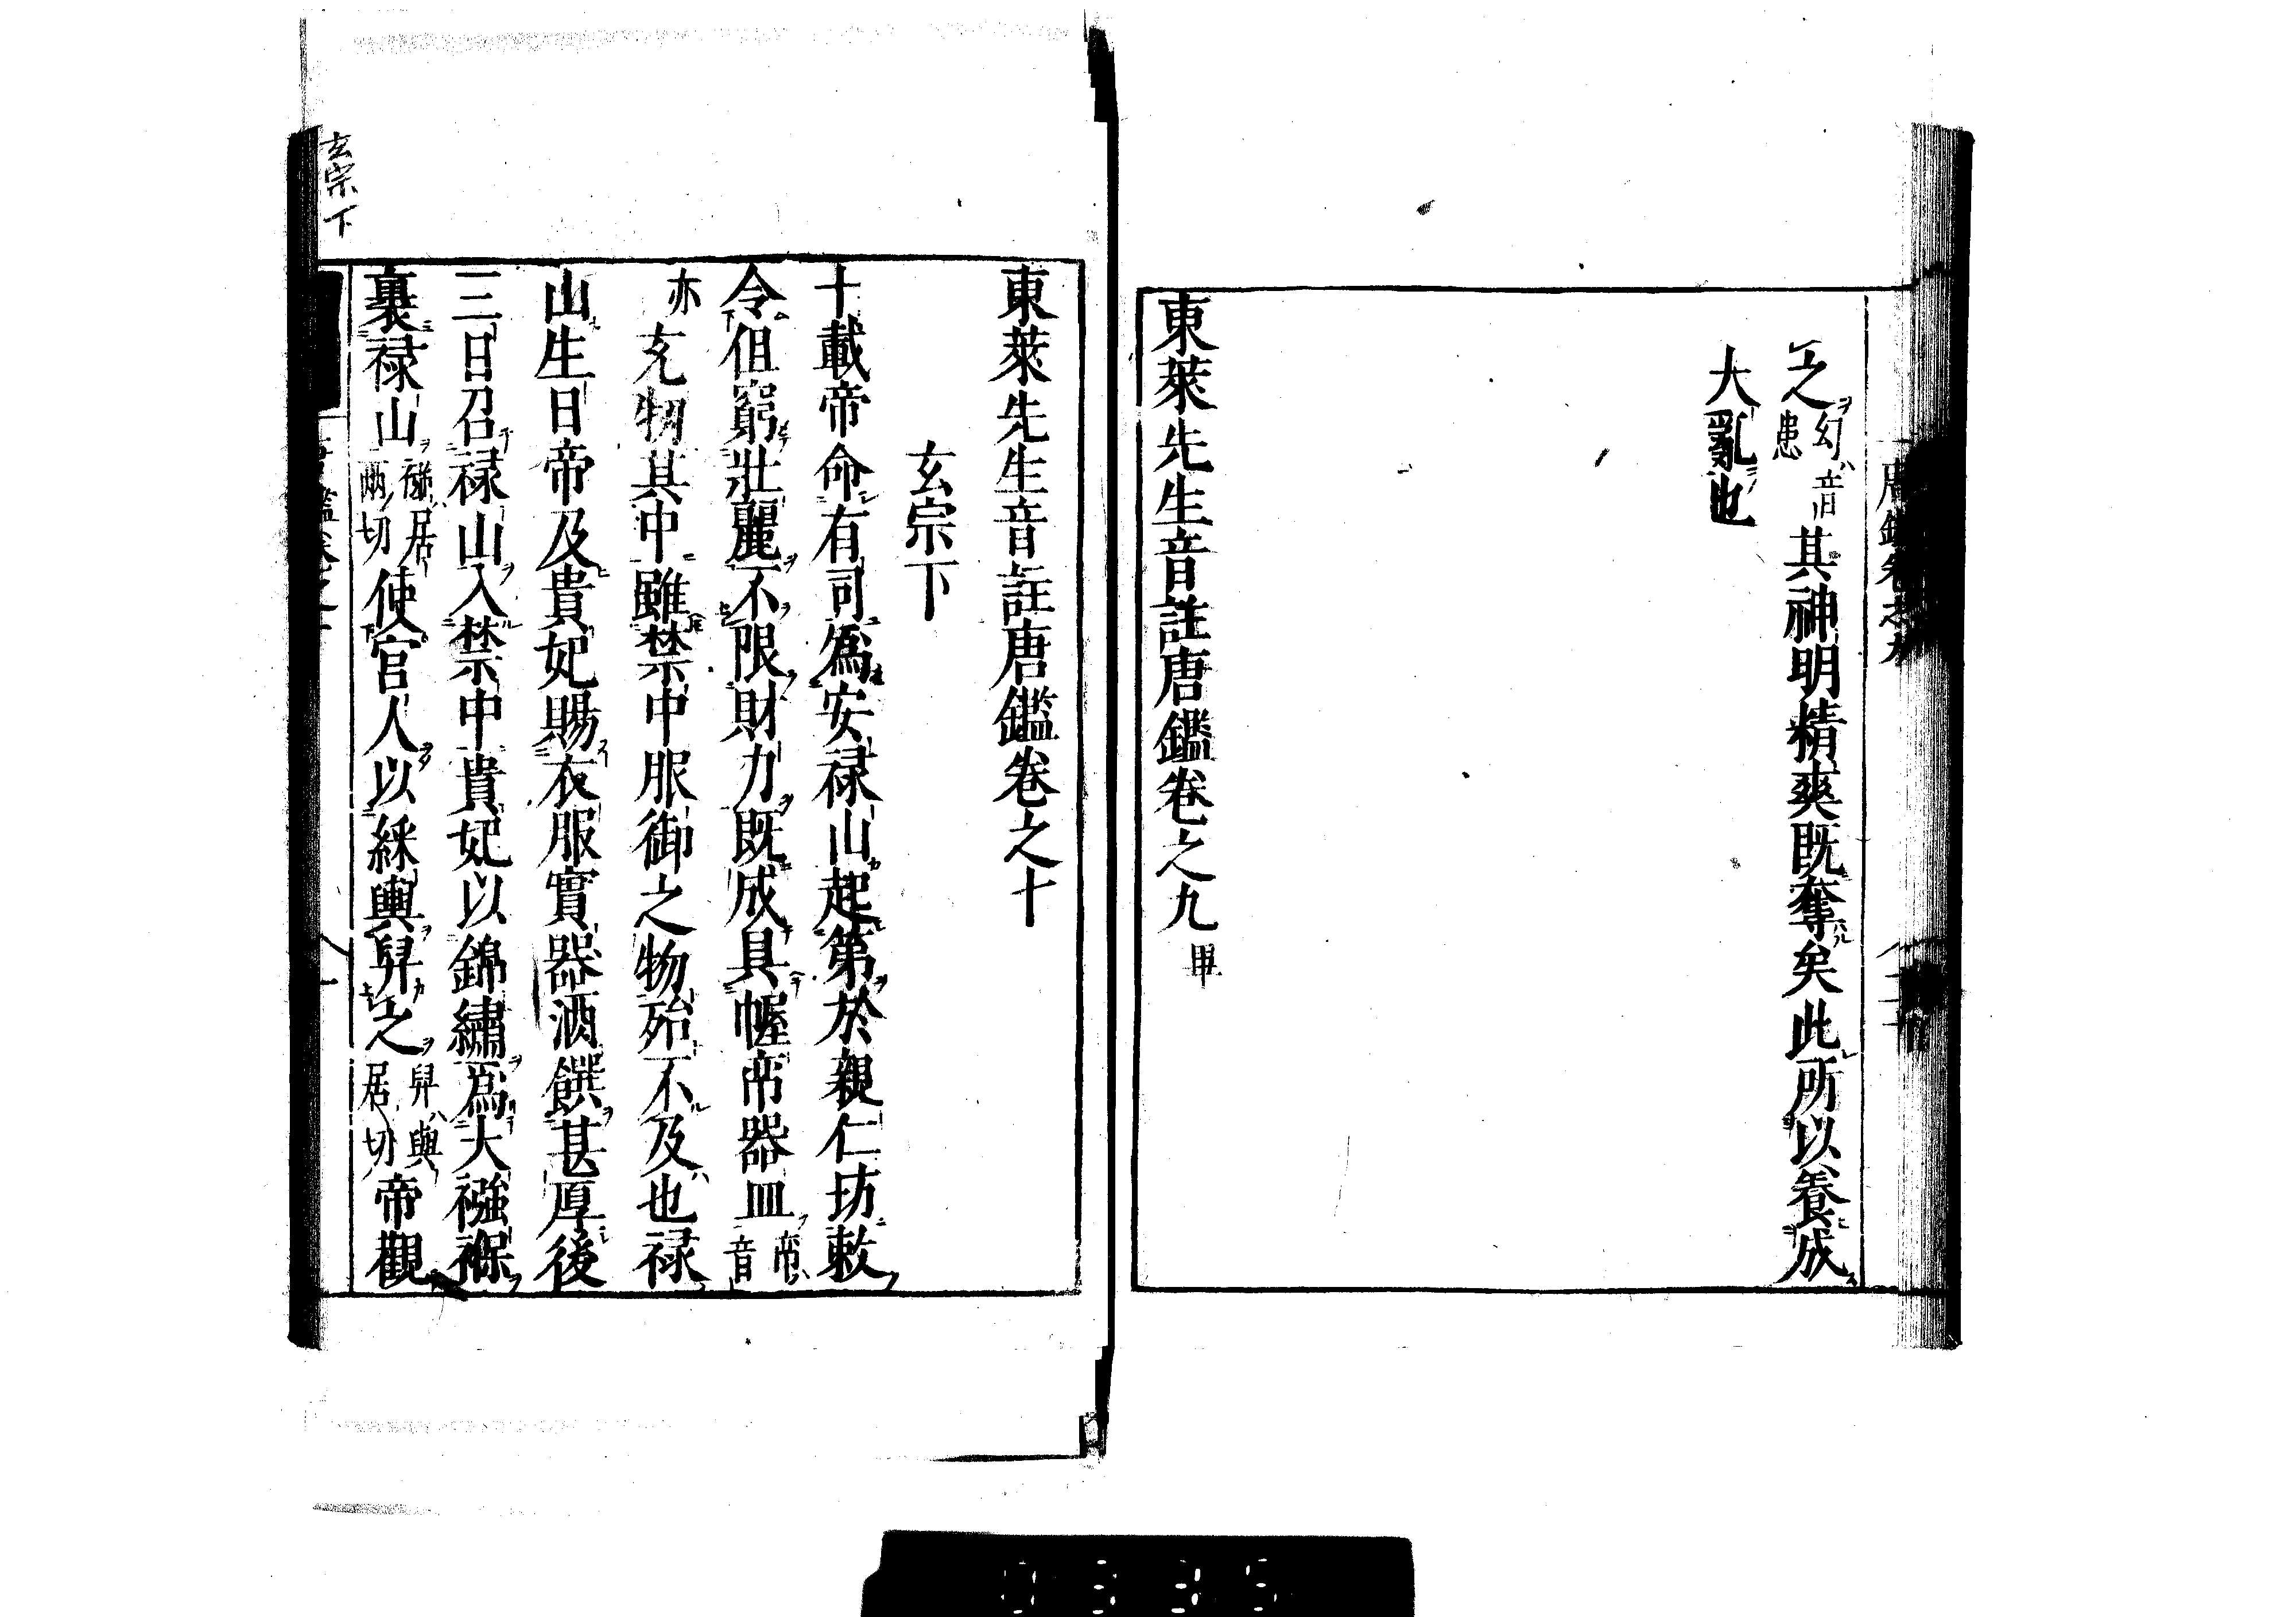 之幻音患其神明精爽既奪矣此所以養成
大亂也
東萊先生音註唐鑑卷之九畢
東萊先生音註唐鑑卷之十
玄宗下
十載帝命有司爲安禄山起第於親仁坊敕
令但窮壯麗不限財力既成具幄帟器皿帟音
亦充牣其中雖禁中服御之物殆不及也禄
山生日帝及貴妃賜衣服寶器酒饌甚厚後
三日召禄山入禁中貴妃以錦繡爲大襁褓
裹禄山襁居兩切使宮人以綵輿舁之舁輿居切帝觀
玄宗下